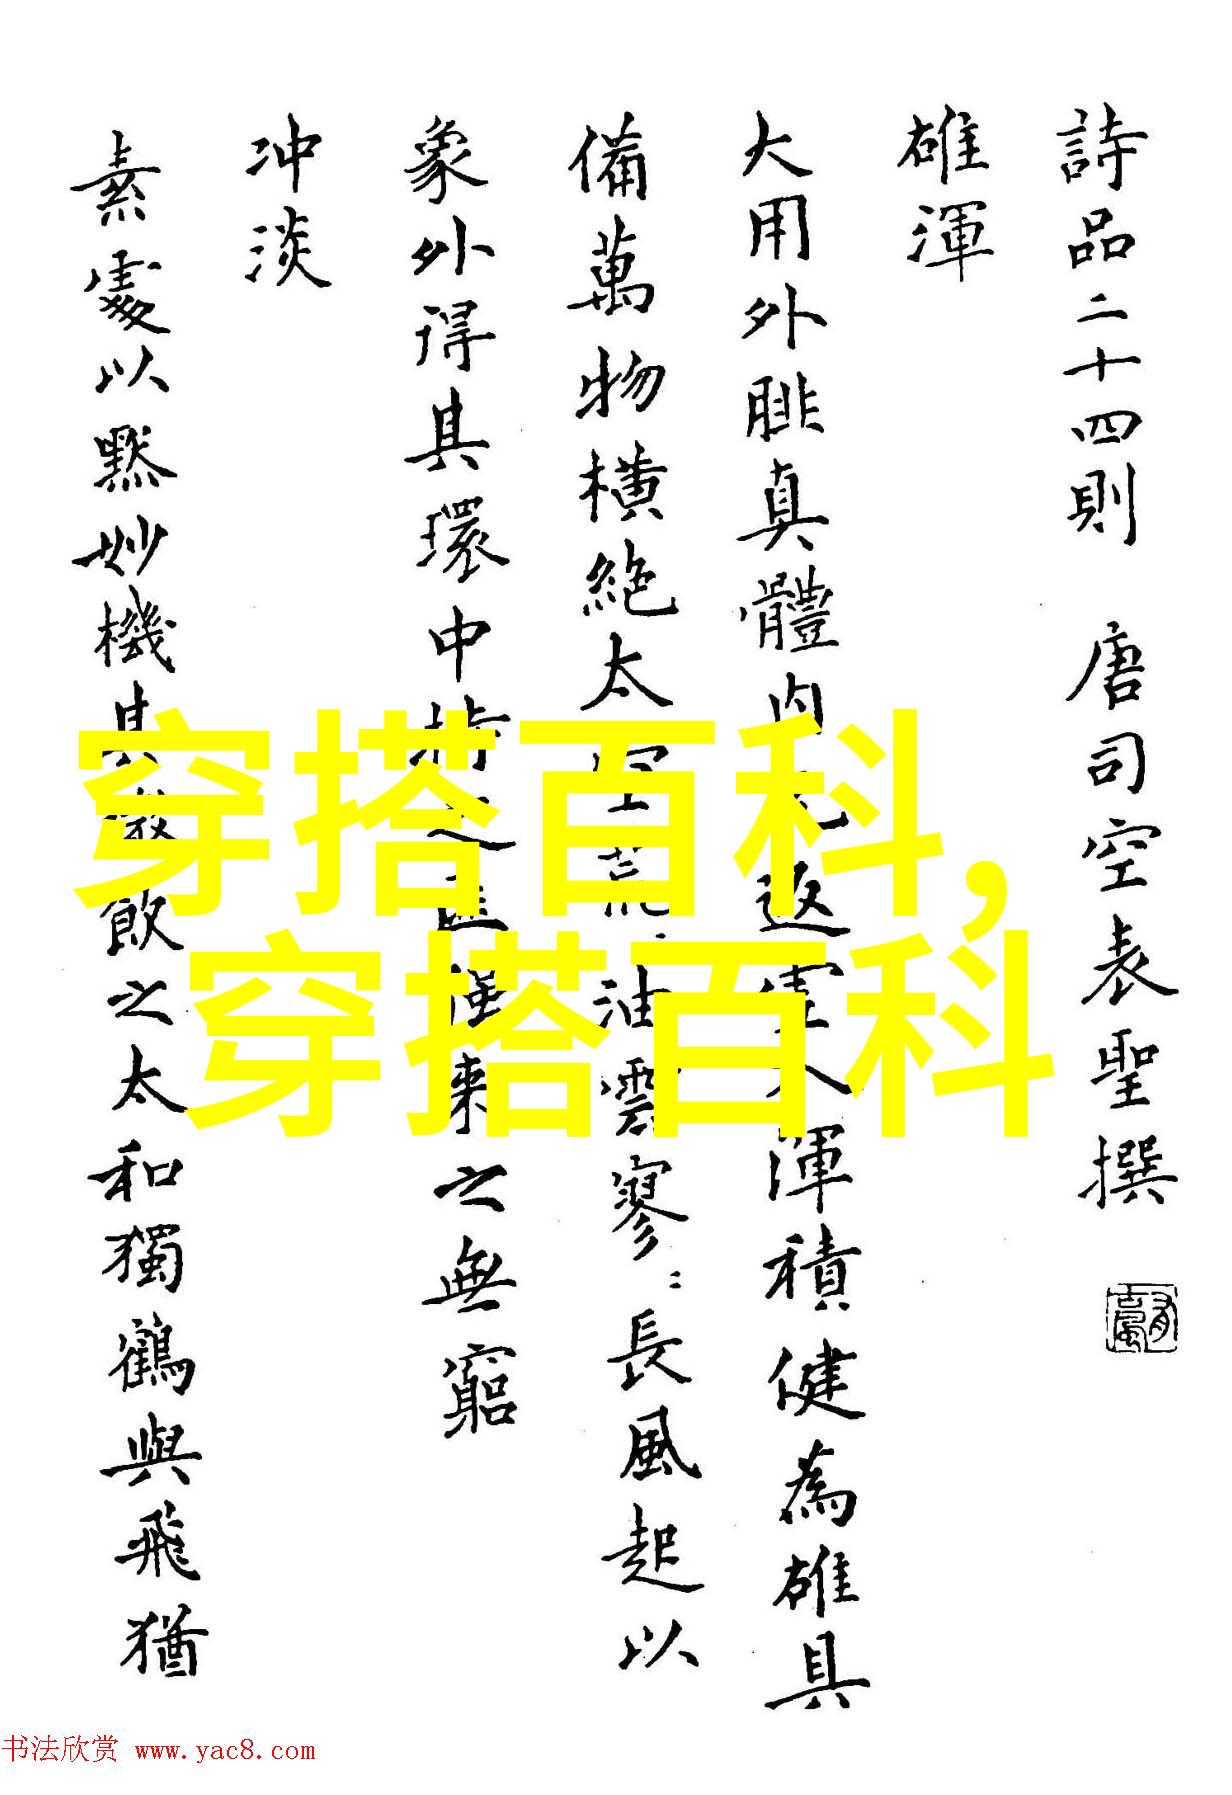 詩品二十四則 唐司空表聖撰
雄渾
大用外腓真體内充返虛入渾積健為雄具
備萬物橫絶太空荒:油雲寥:長風超以
象外得其環中持之匪强來之無窮
冲淡
素處以默妙機其微飲之太和獨鶴與飛猶
穿搭百科,
穿搭百科
书法欣赏 www.yac8.com